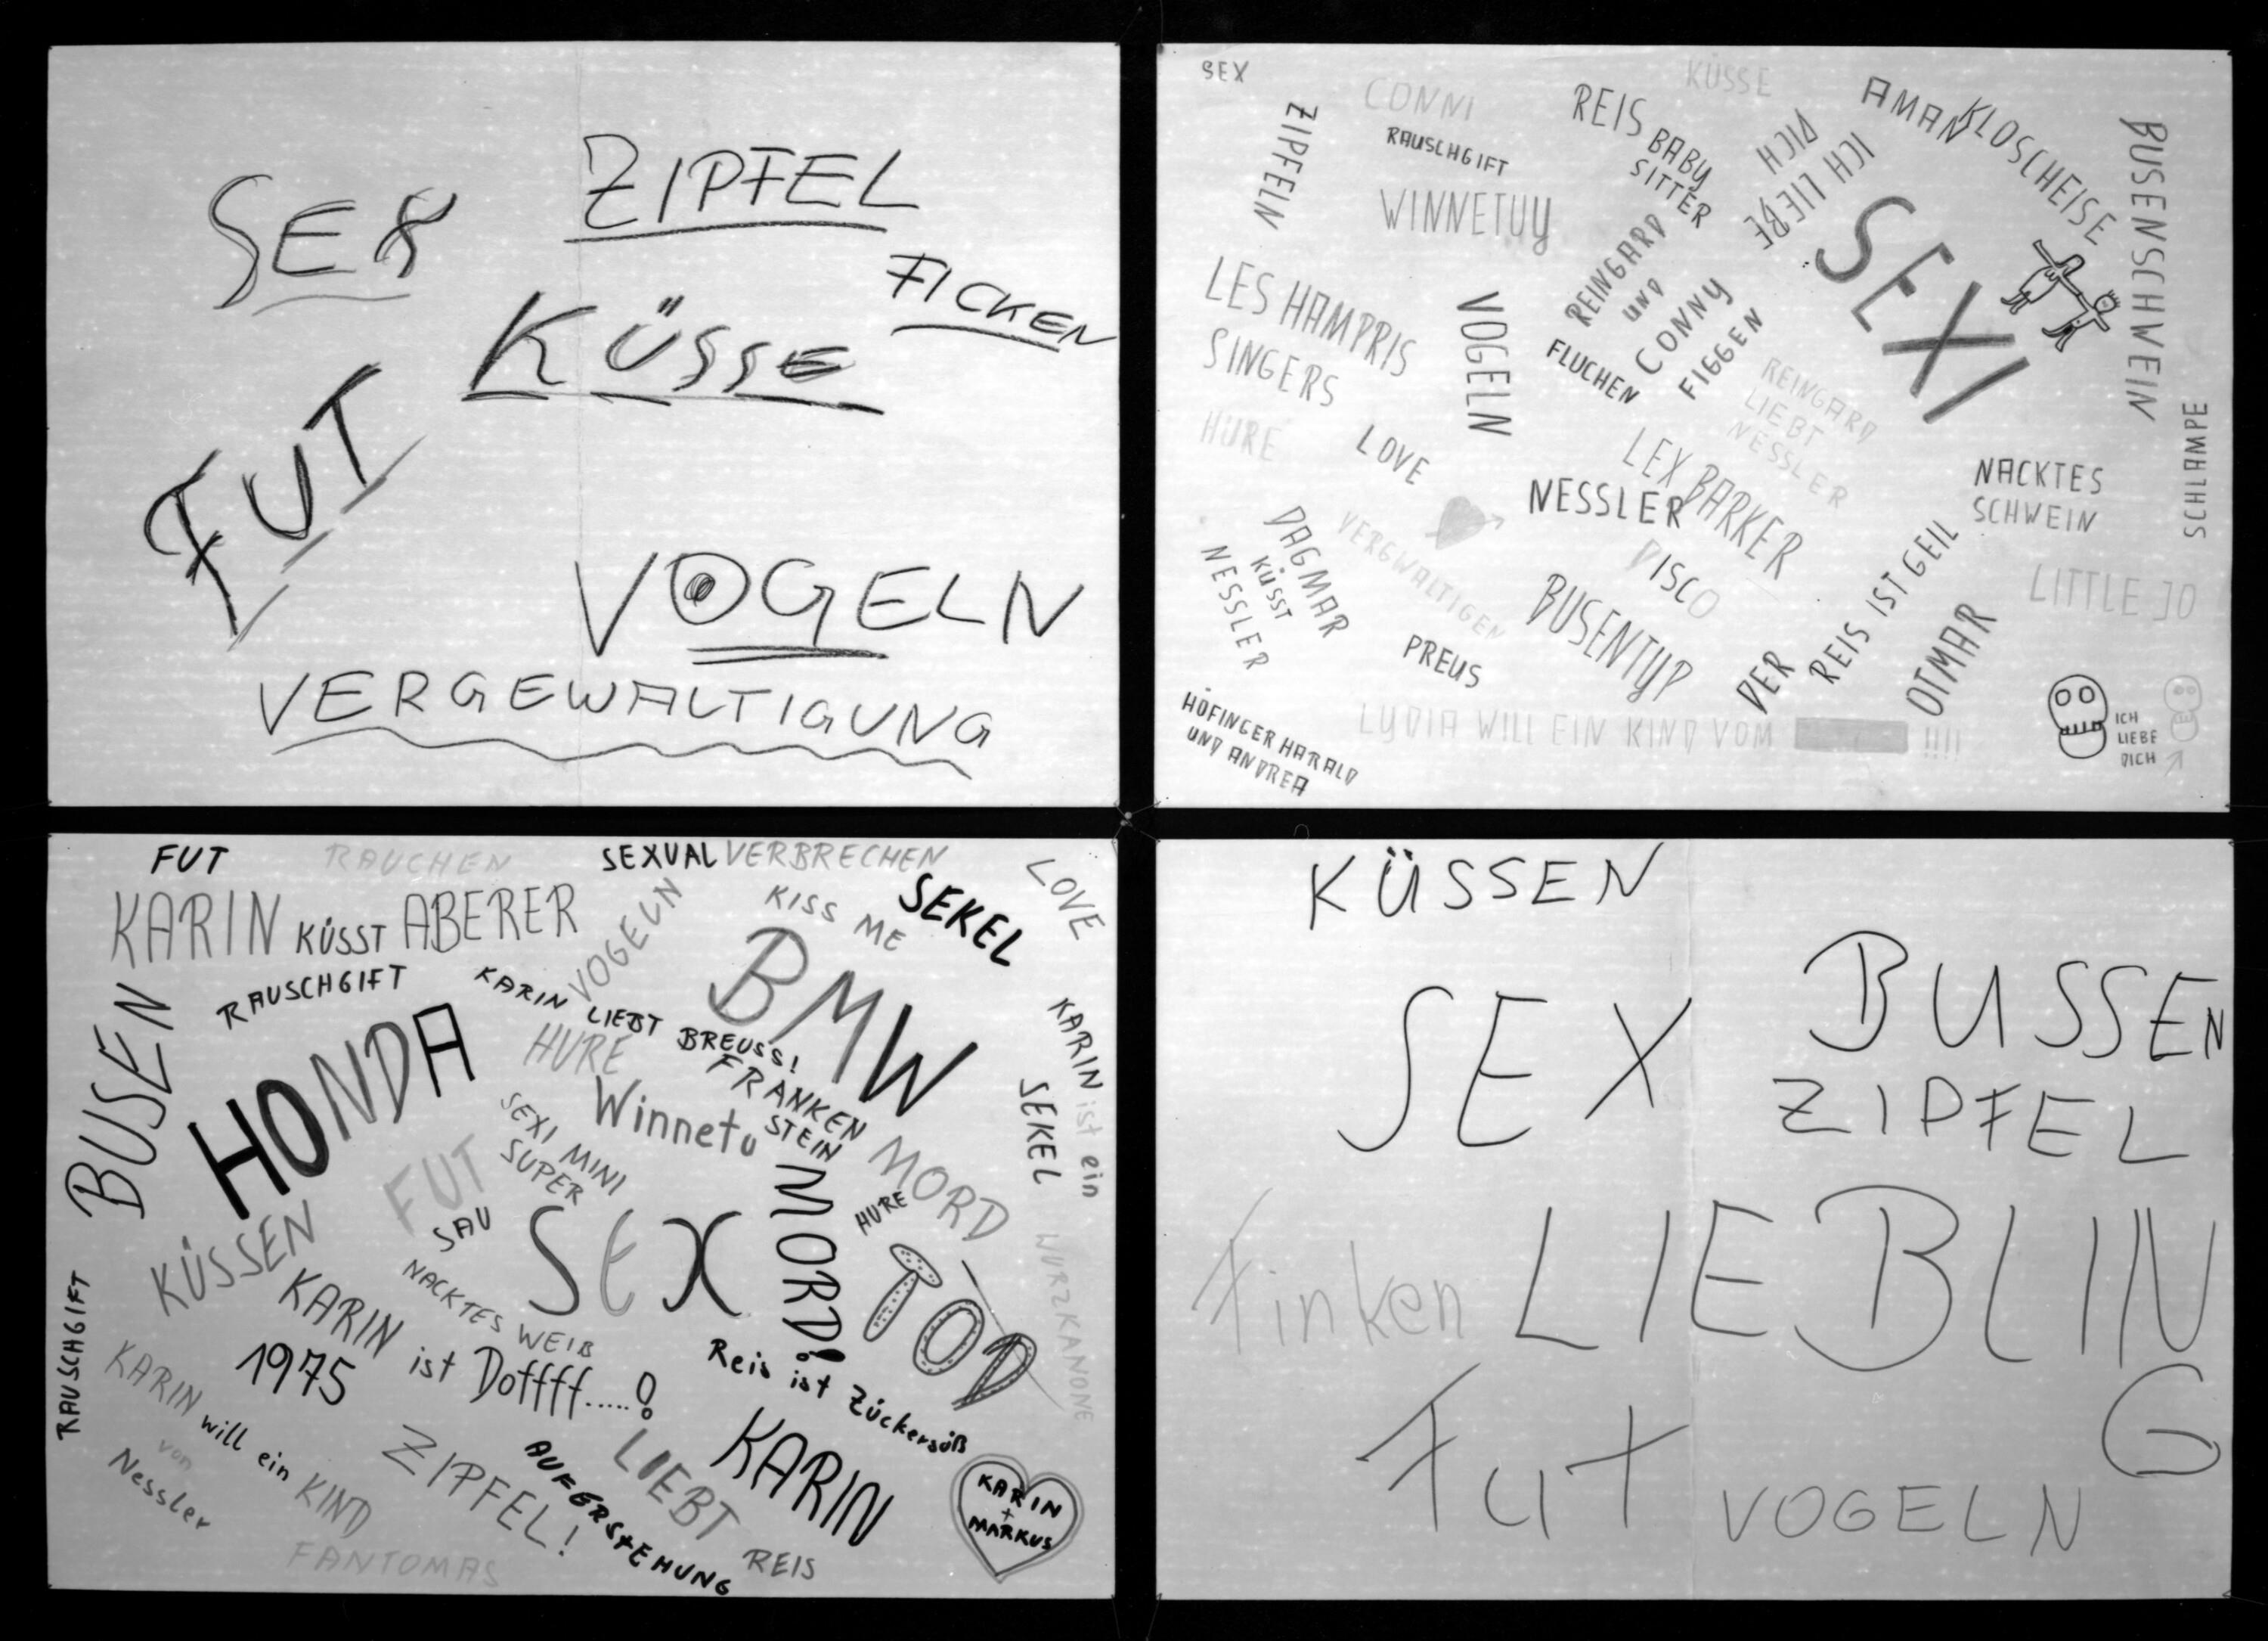 SEX
ZIPFEL
FICKEN
KÜSSE
FUT
VOGELN
VERGEWALTIGUNG
SEX
CONNI
KÜSSE
ZIPFELN
RAUSCHGIFT
WINNETUY
REIS BABY
SITTER
ICH LIEBE
DICH
AMAN
KLOSCHEISE
BUSENSCHWEIN
SEXI
REINGARD
UND
CONNY
FIGGEN
FLUCHEN
LES HAMPRIS
SINGERS
VOGELN
HURE
LOVE
REINGARD
LIEBT
NESSLER
LEX BARKER
NESSLER
NACKTES
SCHWEIN
SCHLAMPE
DAGMAR
KÜSST
NESSLER
VERGWALTIGEN
DISCO
BUSENTYP
PREUS
DER
REIS IST GEIL
OTMAR
LITTLE JO
HÖFINGER HARALD
UND ANDREA
LYDIA WILL EIN KIND VOM !!!!
ICH
LIEBE
DICH
FUT
RAUCHEN
SEXUALVERBRECHEN
LOVE
KARIN KÜSST ABERER
VOGELN
KISS ME
SEKEL
BUSEN
RAUSCHGIFT
KARIN LIEBT BREUSS!
BMW
HONDA
HURE
FRANKEN
STEIN
Winnetu
KARIN ist ein
SEKEL
SEXI MINI
SUPER
FUT
SAU
MORD
MORD!
HURE
SEX
TOD
WURZKANONE
KÜSSEN
NACKTES WEIB
RAUSCHGIFT
KARIN ist Doffff.....!
1975
Reis ist Zückersüß
KARIN will ein KIND
von
Nessler
ZIPFEL!
AUFERSTEHUNG
LIEBT
KARIN
REIS
KARIN
+
MARKUS
FANTOMAS
KÜSSEN
SEX
BUSSEN
ZIPFEL
Finken
LIEBLIN
G
Fut
VOGELN